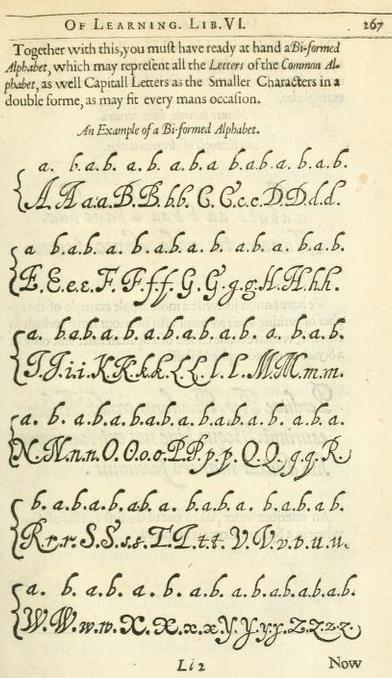 OF LEARNING. LIB. VI. 267
Together with this, you muſt have ready at hand a Bi-formed
Alphabet, which may repreſent all the Letters of the Common Al-
phabet, as well Capitall Letters as the Smaller Characters in a
double forme, as may fit every mans occaſion.
An Example of a Bi-formed Alphabet.
a. b.a.b. a. b. a.b.a b.a.b.a. b.a.b.
A A a.a.B.B.b.b. C.C.c.c.D.D.d.d.
a b.a.b. a. b.a.b.a. b. a.b.a. b.a.b.
E.E.e.e.F.F.f.f.G.G.g.g.H.H.h.h.
a. b.a.b.a. b.a.b.a.b.a.b. a. b.a.b.
I.I.i.i.K.K.k.k.L.L.l.l.M.M.m.m.
a. b. a.b.a. b.a.b.a. b.a.b. a. b.a.b.a.
N.N.n.n.O.O.o.o.P.P.p.p.Q.Q.q.q.R.
b. a.b.a.b.ab.a. b.a.b.a. b.a.b.a.b.
R.r.r.S.S.s.s.T.T.t.t.V.V.v.v.u.u.
a. b. a.b. a. b. a.b.a.b.a.b.a.b.a.b.
W.W.w.w.X.X.x.x.Y.Y.y.y.Z.Z.z.z.
Ll2 Now